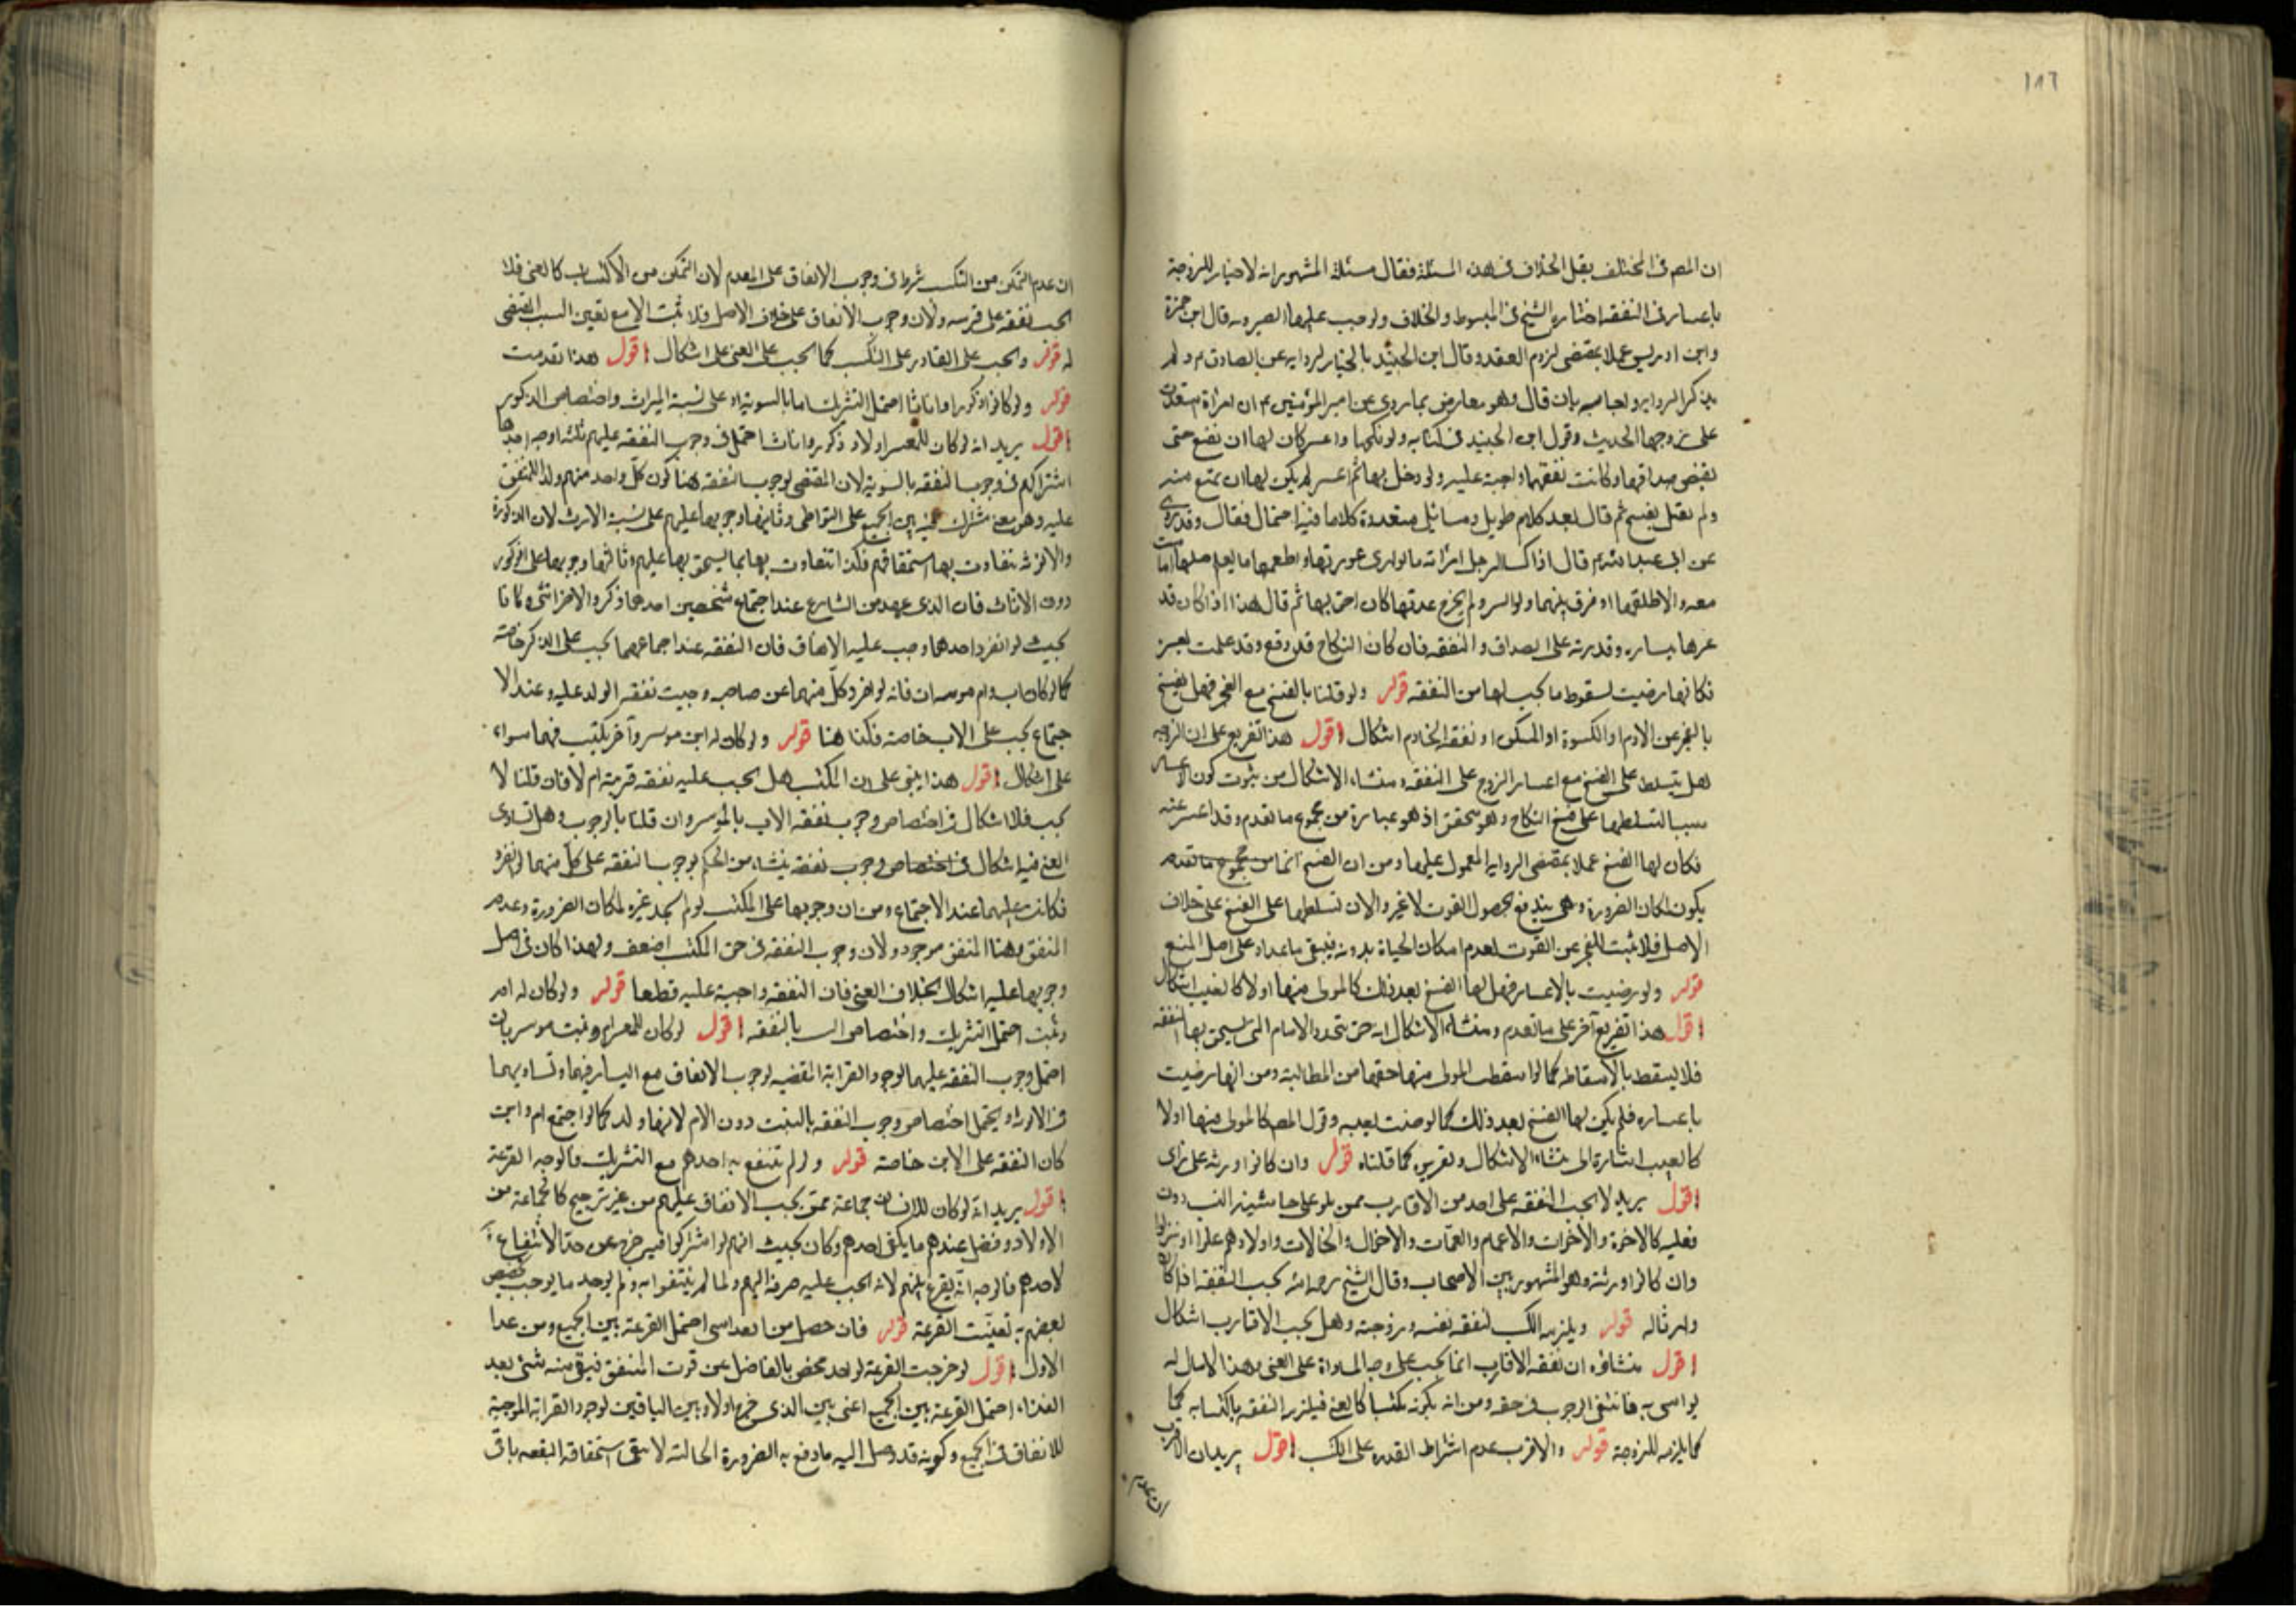 ١٨٦
ان المصه فى المختلف نقل الخلاف فى هذه المسئلة فقال مسئلة المشهور انه لا خيار للزوجة
باعسار فى النفقه اختاره الشيخ فى المبسوط والخلاف واوجب عليها الصبر وبه قال ابن حمزة
وابن ادريس عملا بمقتضى لزوم العقد وقال ابن الجنيد بالخيار لروايه عن الصادق م ولم
يذكر الروايه واجاب بان قال وهو معارض بما روى عن امير المؤمنين م ان امراة استعدت
على زوجها الحديث وقول ابن الجنيد فى كتابه ولو نكحها واعسر كان لها ان تمنع حتى
تقبض صداقها وكانت نفقتها واجبة عليه ولو دخل بها ثم اعسر لم يكن لها ان تمتنع منه
ولم يقل بفسخ ثم قال بعد كلام طويل ومسائل متعددة كلاما فيه احتمال فقال وقد روى
عن ابى عبد الله م قال اذا كسا الرجل امراته ما يوارى عورتها واطعمها ما يقيم صلبها اقامت
معه والا طلقها او فرق بينهما ولو ايسر ولم يخرج عدتها كان احق بها ثم قال هذا اذا كان قد
غرها بيساره وقدرته على الصداق والنفقه فان كان النكاح قد وقع وقد علمت بعسر
فكانها رضيت لسقوط ما يجب لها من النفقه قوله ولو قلنا بالفسخ مع العجز فهل يفسخ
بالعجز عن الادم او الكسوة او المسكن او نفقه الخادم اشكال اقول هذا تفريع على ان الزوجه
هل يتسلط على الفسخ مع اعسار الزوج على النفقه ومنشاء الاشكال من ثبوت كون الاعسار
سببا لتسلطها على فسخ النكاح وهو متحقق اذ هو عبارة عن مجموع ما تقدم وقد اعسر عنه
فكان لها الفسخ عملا بمقتضى الروايه المعمول عليها ومن ان الفسخ انما من مجموع ما تقدم
يكون لمكان الضرورة وهى يندفع بحصول القوت لا غير والان تسلطها على الفسخ على خلاف
الاصل فلا يثبت للعجز عن القوت لعدم امكان الحياة بدونه فيبقى ما عداه على اصل المنع
قوله ولو رضيت بالاعسار فهل لها الفسخ بعد ذلك كالمولى منها اولا كالعيب اشكال
اقول هذا تفريع آخر على ما تقدم ومنشاء الاشكال انه حق يتجدد الايام التى يستحق بها النفقه
فلا يسقط بالاسقاط كما لو اسقطت المولى منها حقها من المطالبة ومن انها رضيت
باعساره فلم يكن لها الفسخ بعد ذلك كما لو رضيت بعيبه وقول المصه كالمولى منها اولا
كالعيب اشارة الى منشاء الاشكال وتقريره كما قلناه قوله وان كانوا ورثه على راى
اقول يريد لا يجب النفقه على احد من الاقارب ممن يلوعلى حاشية النسب دون
فعليه كالاخوة والاخوات والاعمام والعمات والاخوال والخالات واولادهم علوا او نزلوا
وان كانوا ورثه وهو المشهور بين الاصحاب وقال الشيخ رحمه الله يجب النفقه اذا كانوا
وارثا له قوله ويلزمه الكسب لنفقه نفسه وزوجته وهل يجب الاقارب اشكال
اقول منشاؤه ان نفقه الاقارب انما يجب على وجه المواساة على الغنى وهذا لا مال له
يواسى به فانتفى الوجوب فى حقه ومن انه يكون مكتسبا كالغنى فيلزمه النفقه باكتسابه كما
كما يلزمه للزوجة قوله والاقرب عدم اشتراط القدره على الكسب اقول يريد ان الاقرب
ان عدم
ان عدم التمكن من التكسب شرط فى وجوب الانفاق على المعدم لان التمكن من الاكتساب كالغنى فلا
يجب نفقه على قريبه ولان وجوب الانفاق على خلاف الاصل فلا يثبت الا مع تعين السبب المقتضى
له قوله ويجب على القادر على التكسب كما يجب على الغنى على اشكال اقول هذا تقدمت
قوله ولو كانوا ذكورا واناثا احتمل التشريك اما بالسوية او على نسبة الميراث واختصاص الذكور
اقول يريد انه لو كان للمعسر اولاد ذكور واناث احتمل فى وجوب النفقه عليهم ثلثه اوجه احدها
اشتراكهم فى وجوب النفقه بالسوية لان المقتضى لوجوب النفقه هنا كون كل واحد منهم ولدا للمنفق
عليه وهو معنى مشترك فيه بين الجميع على التواطى وثانيها وجوبها عليهم على نسبة الارث لان الذكورة
والانوثه تفاوت بها استحقاقهم فكذا تتفاوت بها بما يستحق بها عليهم وثالثها وجوبها على الذكور
دون الاناث فان الذى عهد من الشارع عند اجتماع شخصين احدهما ذكر والاخر انثى وكانا
بحيث لو انفرد احدهما وجب عليه الانفاق فان النفقه عند اجماعهما يجب على الذكر خاصة
كما لو كان اب وام موسران فانه لو انفرد كل منهما عن صاحبه وجبت نفقه الولد عليه وعند الا
جتماع يجب على الاب خاصة فكذا هنا قوله ولو كان له ابن موسر وآخر يكتسب فهما سواء
على اشكال اقول هذا يبنى على ان المكتسب هل يجب عليه نفقه قريبه ام لا فان قلنا لا
يجب فلا اشكال فى اختصاص وجوب نفقه الاب بالموسر وان قلنا بالوجوب وهل تساوى
الغنى فيه اشكال فى اختصاص وجوب نفقة ينشاء من الحكم بوجوب النفقه على كل منهما لو انفرد
فكانت عليهما عند الاجتماع ومن ان وجوبها على المكتسب لو لم يجد غيره لمكان الضرورة وعدم
المنفق وهنا المنفق موجود ولان وجوب النفقه فى حق المكتسب اضعف ولهذا كان فى اصل
وجوبها عليه اشكال بخلاف الغنى فان النفقه واجبة عليه قطعا قوله ولو كان له ام
وبنت احتمل التشريك واختصاص البنت بالنفقه اقول لو كان للمعسر ام وبنت موسرتان
احتمل وجوب النفقه عليهما لوجود القرابة المقتضيه لوجوب الانفاق مع اليسار فيهما وتساويهما
فى الارث ويحتمل اختصاص وجوب النفقه بالبنت دون الام لانها ولد كما لو اجتمع ام وابن
كان النفقه على الابن خاصة قوله ولو لم تنتفع به احدهم مع التشريك فالوجه القرعة
اقول يريد انه لو كان للانسان جماعة ممن يجب الانفاق عليهم من غير ترجيح كالجماعة من
الاولاد وفضل عنده ما يكفى احدهم وكان بحيث انهم لو اشتركوا فيه خرج عن حد الانتفاع به
لاحدهم فالوجه انه يقرع بينهم لانه يجب عليه صرفه اليهم ولما لم ينتفعوا به ولم يوجد ما يوجب تخصيص
بعضهم به تعينت القرعة قوله فان حصل من بعد اسى احتمل القرعة بين الجميع ومن عدا
الاول اقول لو خرجت القرعة لواحد محض بالفاضل عن قوت المنفق فبقى منه شئ بعد
الغذاء احتمل القرعة بين الجميع اعنى بين الذى خرج اولا وبين الباقين لوجود القرابة الموجبة
للانفاق فى الجميع وكونه قد وصل اليه ما دفع به الضرورة الحالية لا ينفى استحقاقه النفقه باق